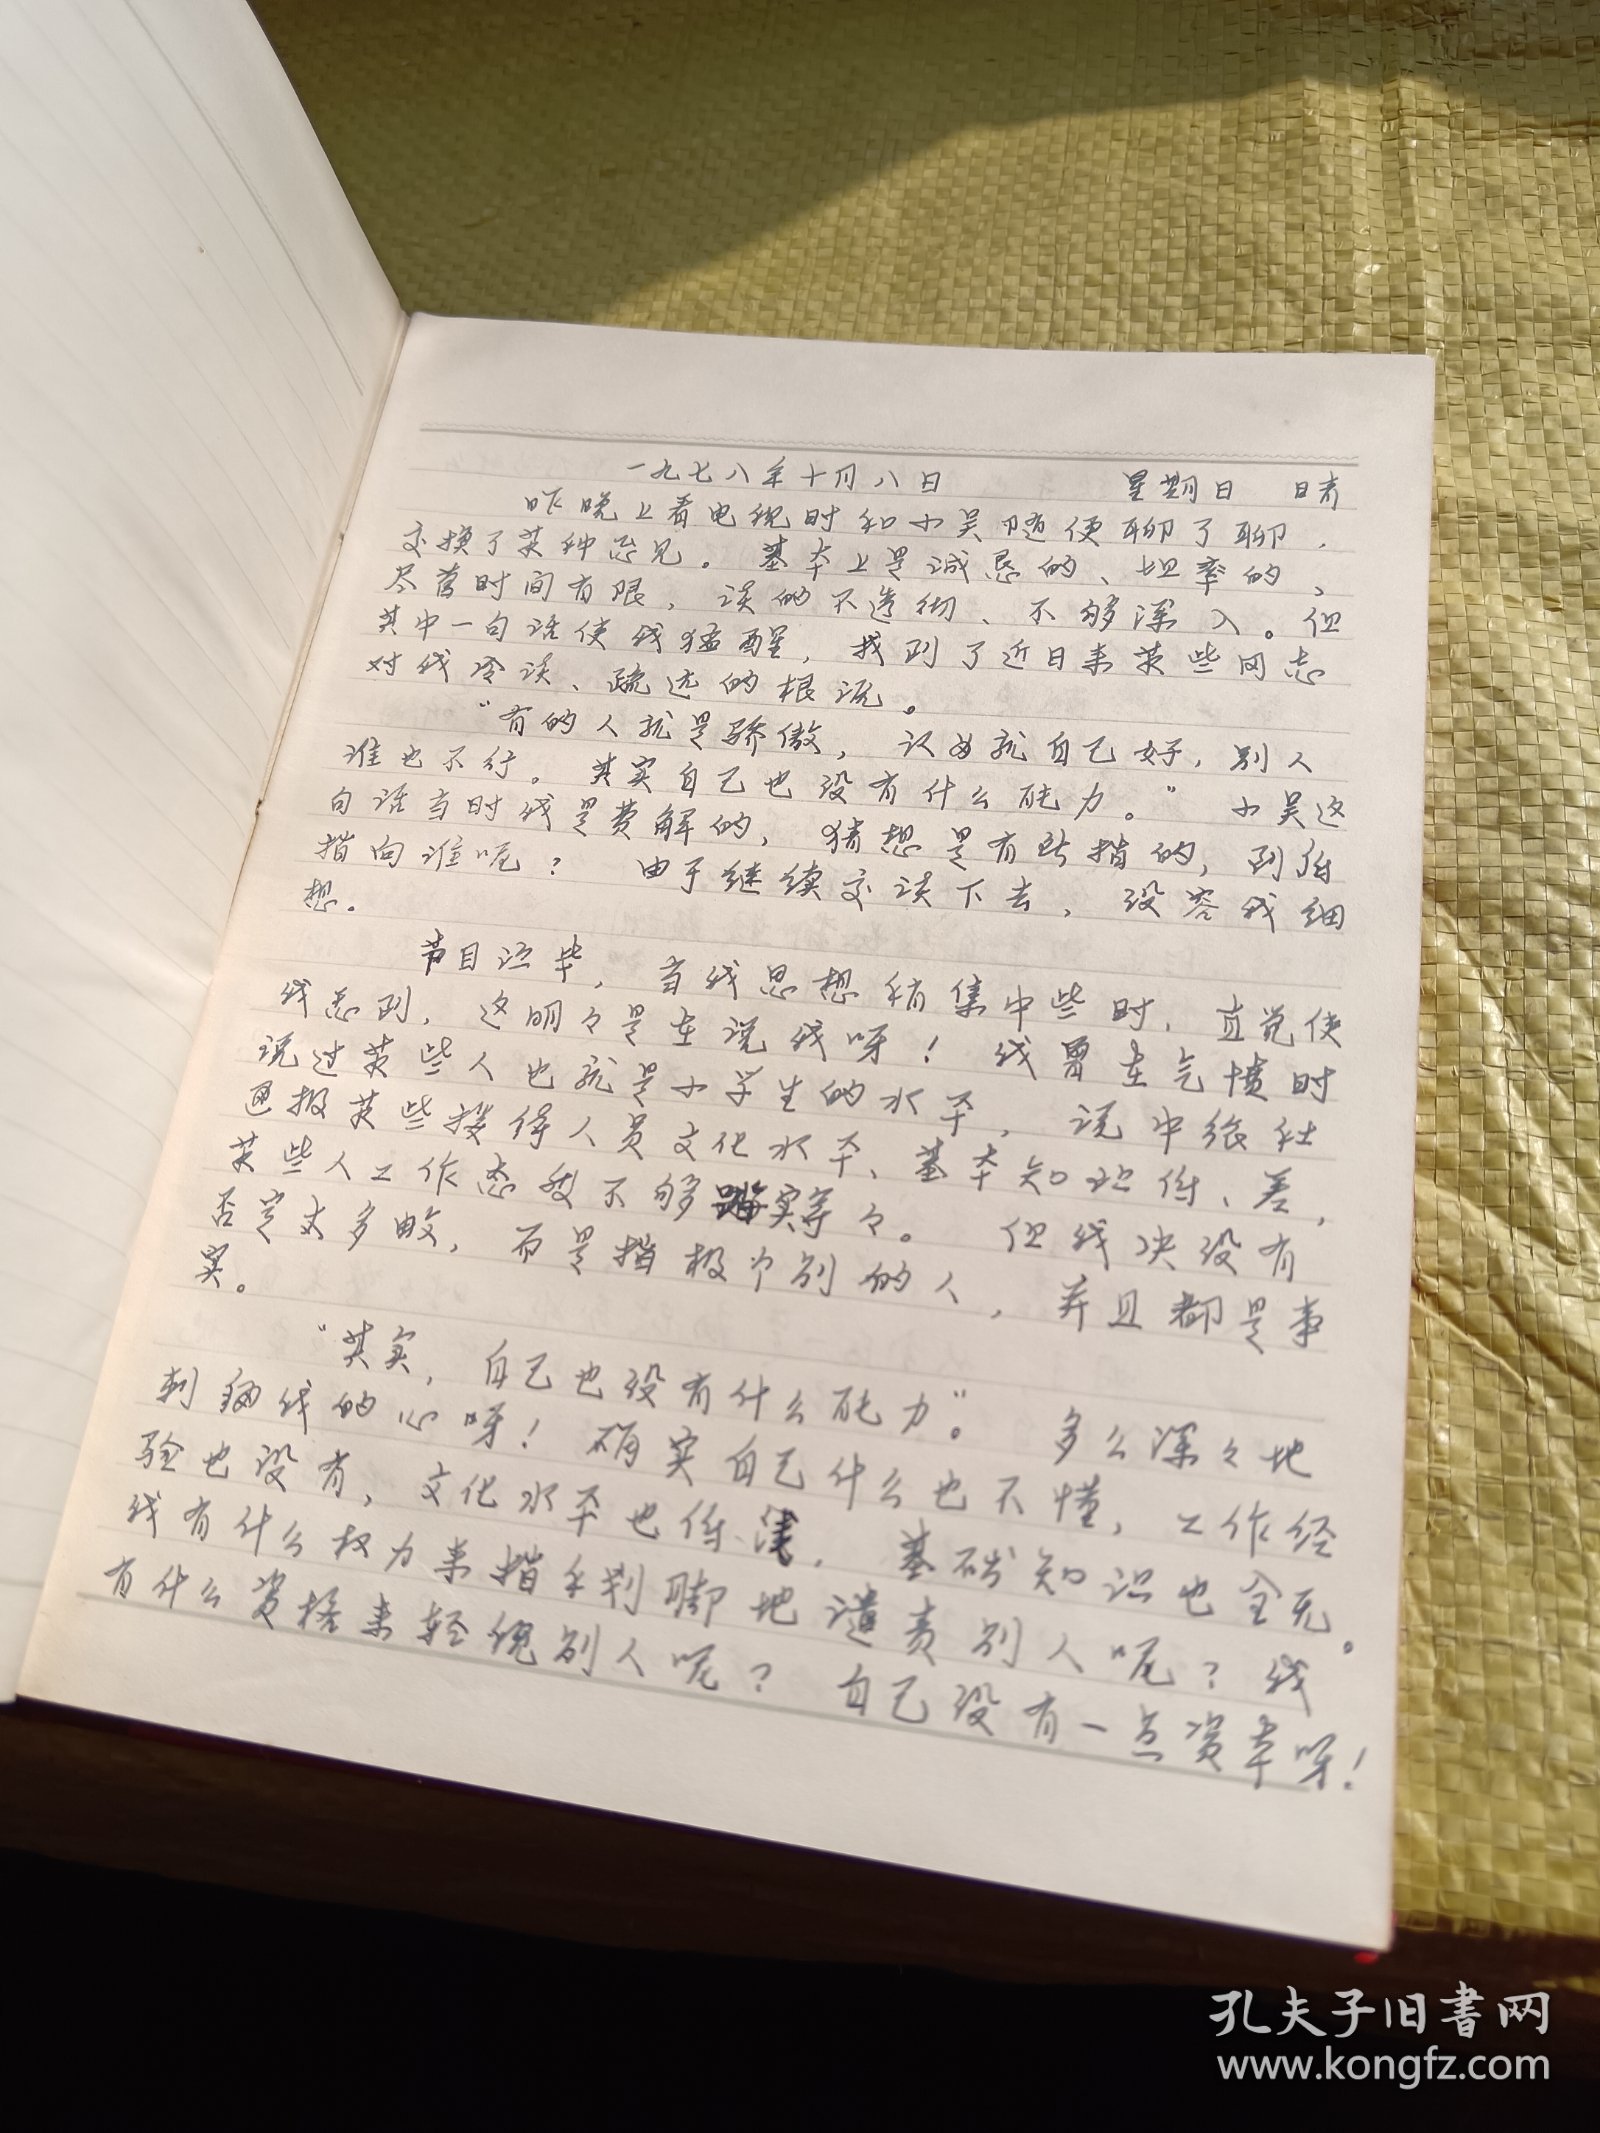 一九七八年十月八日 星期日 晴
昨晚上看电视时和小吴随便聊了聊，
交换了某种意见。基本上是诚恳的、坦率的，
尽管时间有限，谈的不透彻、不够深入。但
其中一句话使我猛醒，找到了近日来某些同志
对我冷谈、疏远的根源。
“有的人就是骄傲，认为就自己好，别人
谁也不行。其实自己也没有什么能力。”小吴这
句话当时我是费解的，猜想是有所指的，到底
指向谁呢？由于继续交谈下去，没容我细
想。
节目演毕，当我思想稍集中些时，直觉使
我感到，这明々是在说我呀！我曾在气愤时
说过某些人也就是小学生的水平，说中旅社
某些接待人员文化水平、基本知识低、差，
某些人工作态度不够踏实等々。但我决没有
否定大多数，而是指极个别的人，并且都是事
实。
“其实，自己也没有什么能力”。多么深々地
刺痛我的心呀！确实自己什么也不懂，工作经
验也没有，文化水平也低浅，基础知识也全无。
我有什么权力来指手划脚地谴责别人呢？我
有什么资格来轻视别人呢？自己没有一点资本呀！
孔夫子旧书网
www.kongfz.com